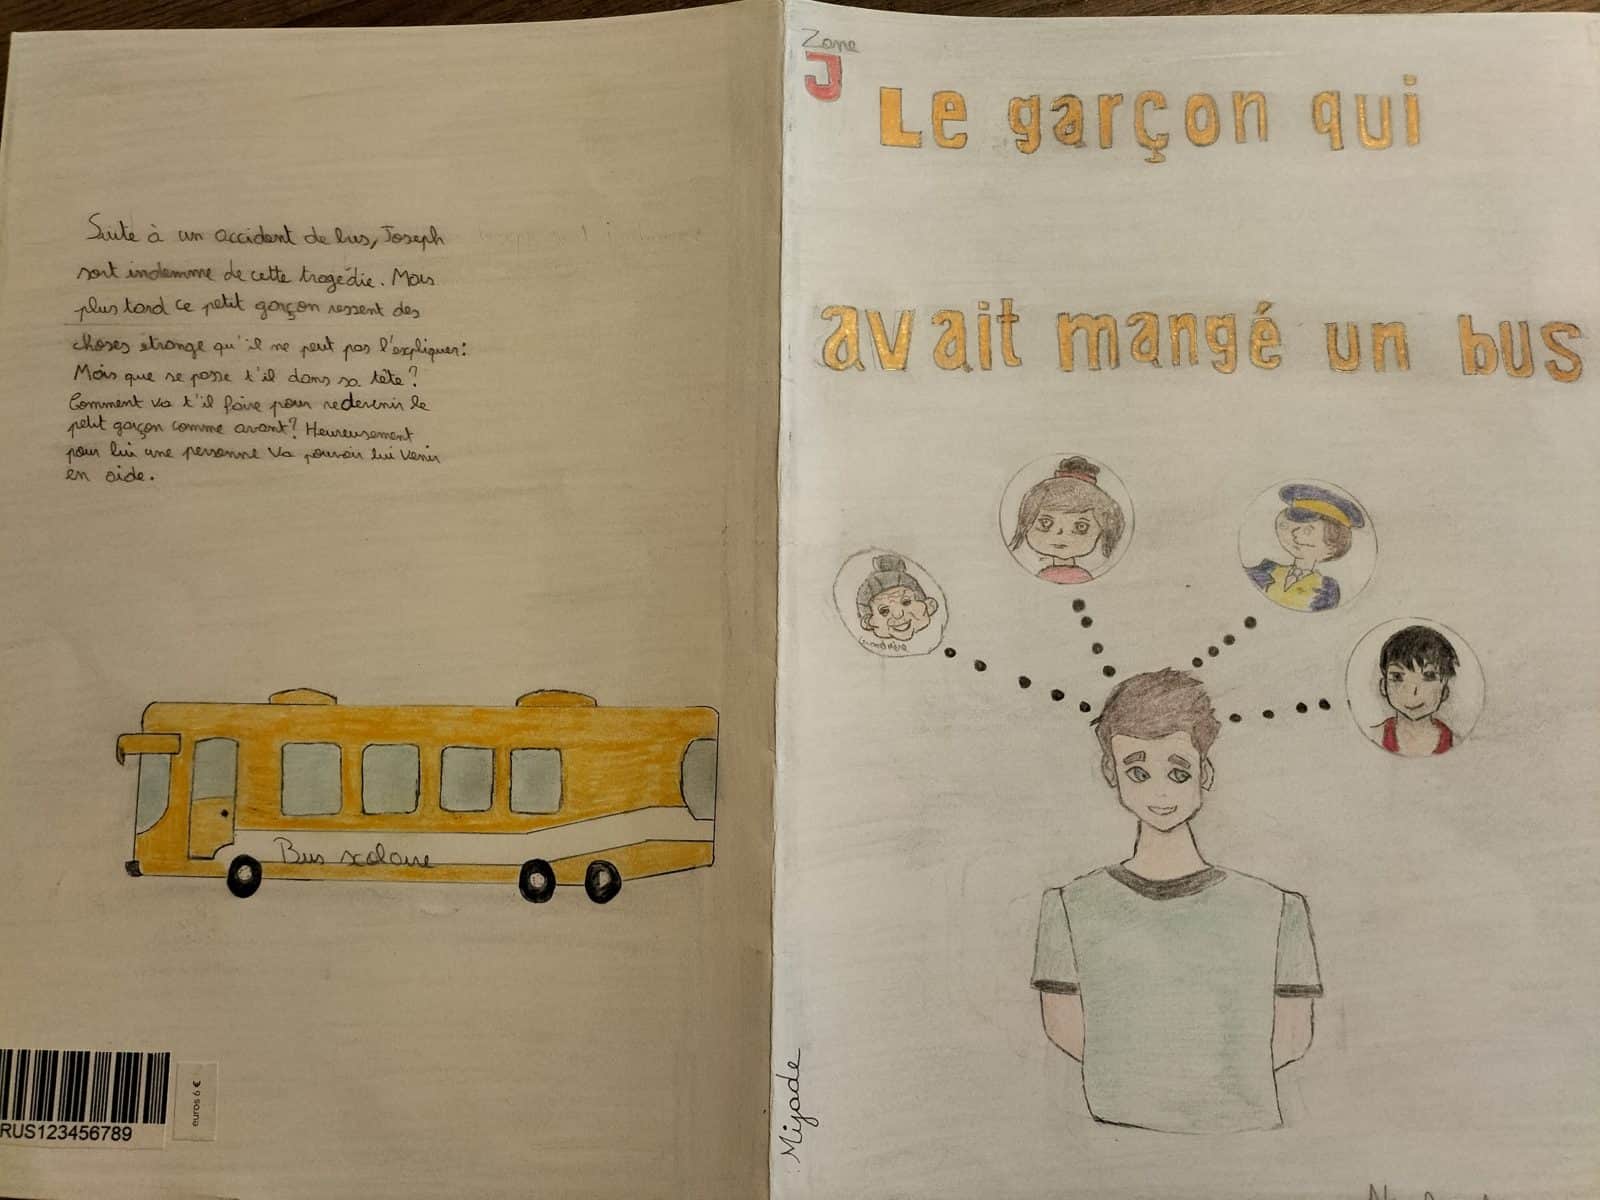 Suite à un accident de bus, Joseph
sort indemme de cette tragédie. Mais
plus tard ce petit garçon ressent des
choses étrange qu'il ne peut pas l'expliquer:
Mais que se passe t'il dans sa tête?
Comment va t'il faire pour redevenir le
petit garçon comme avant? Heureusement
pour lui une personne va pouvoir lui venir
en aide.
Bus scolaire
RUS123456789
euros 6 €
Zone
J
Le garçon qui
avait mangé un bus
Miyade